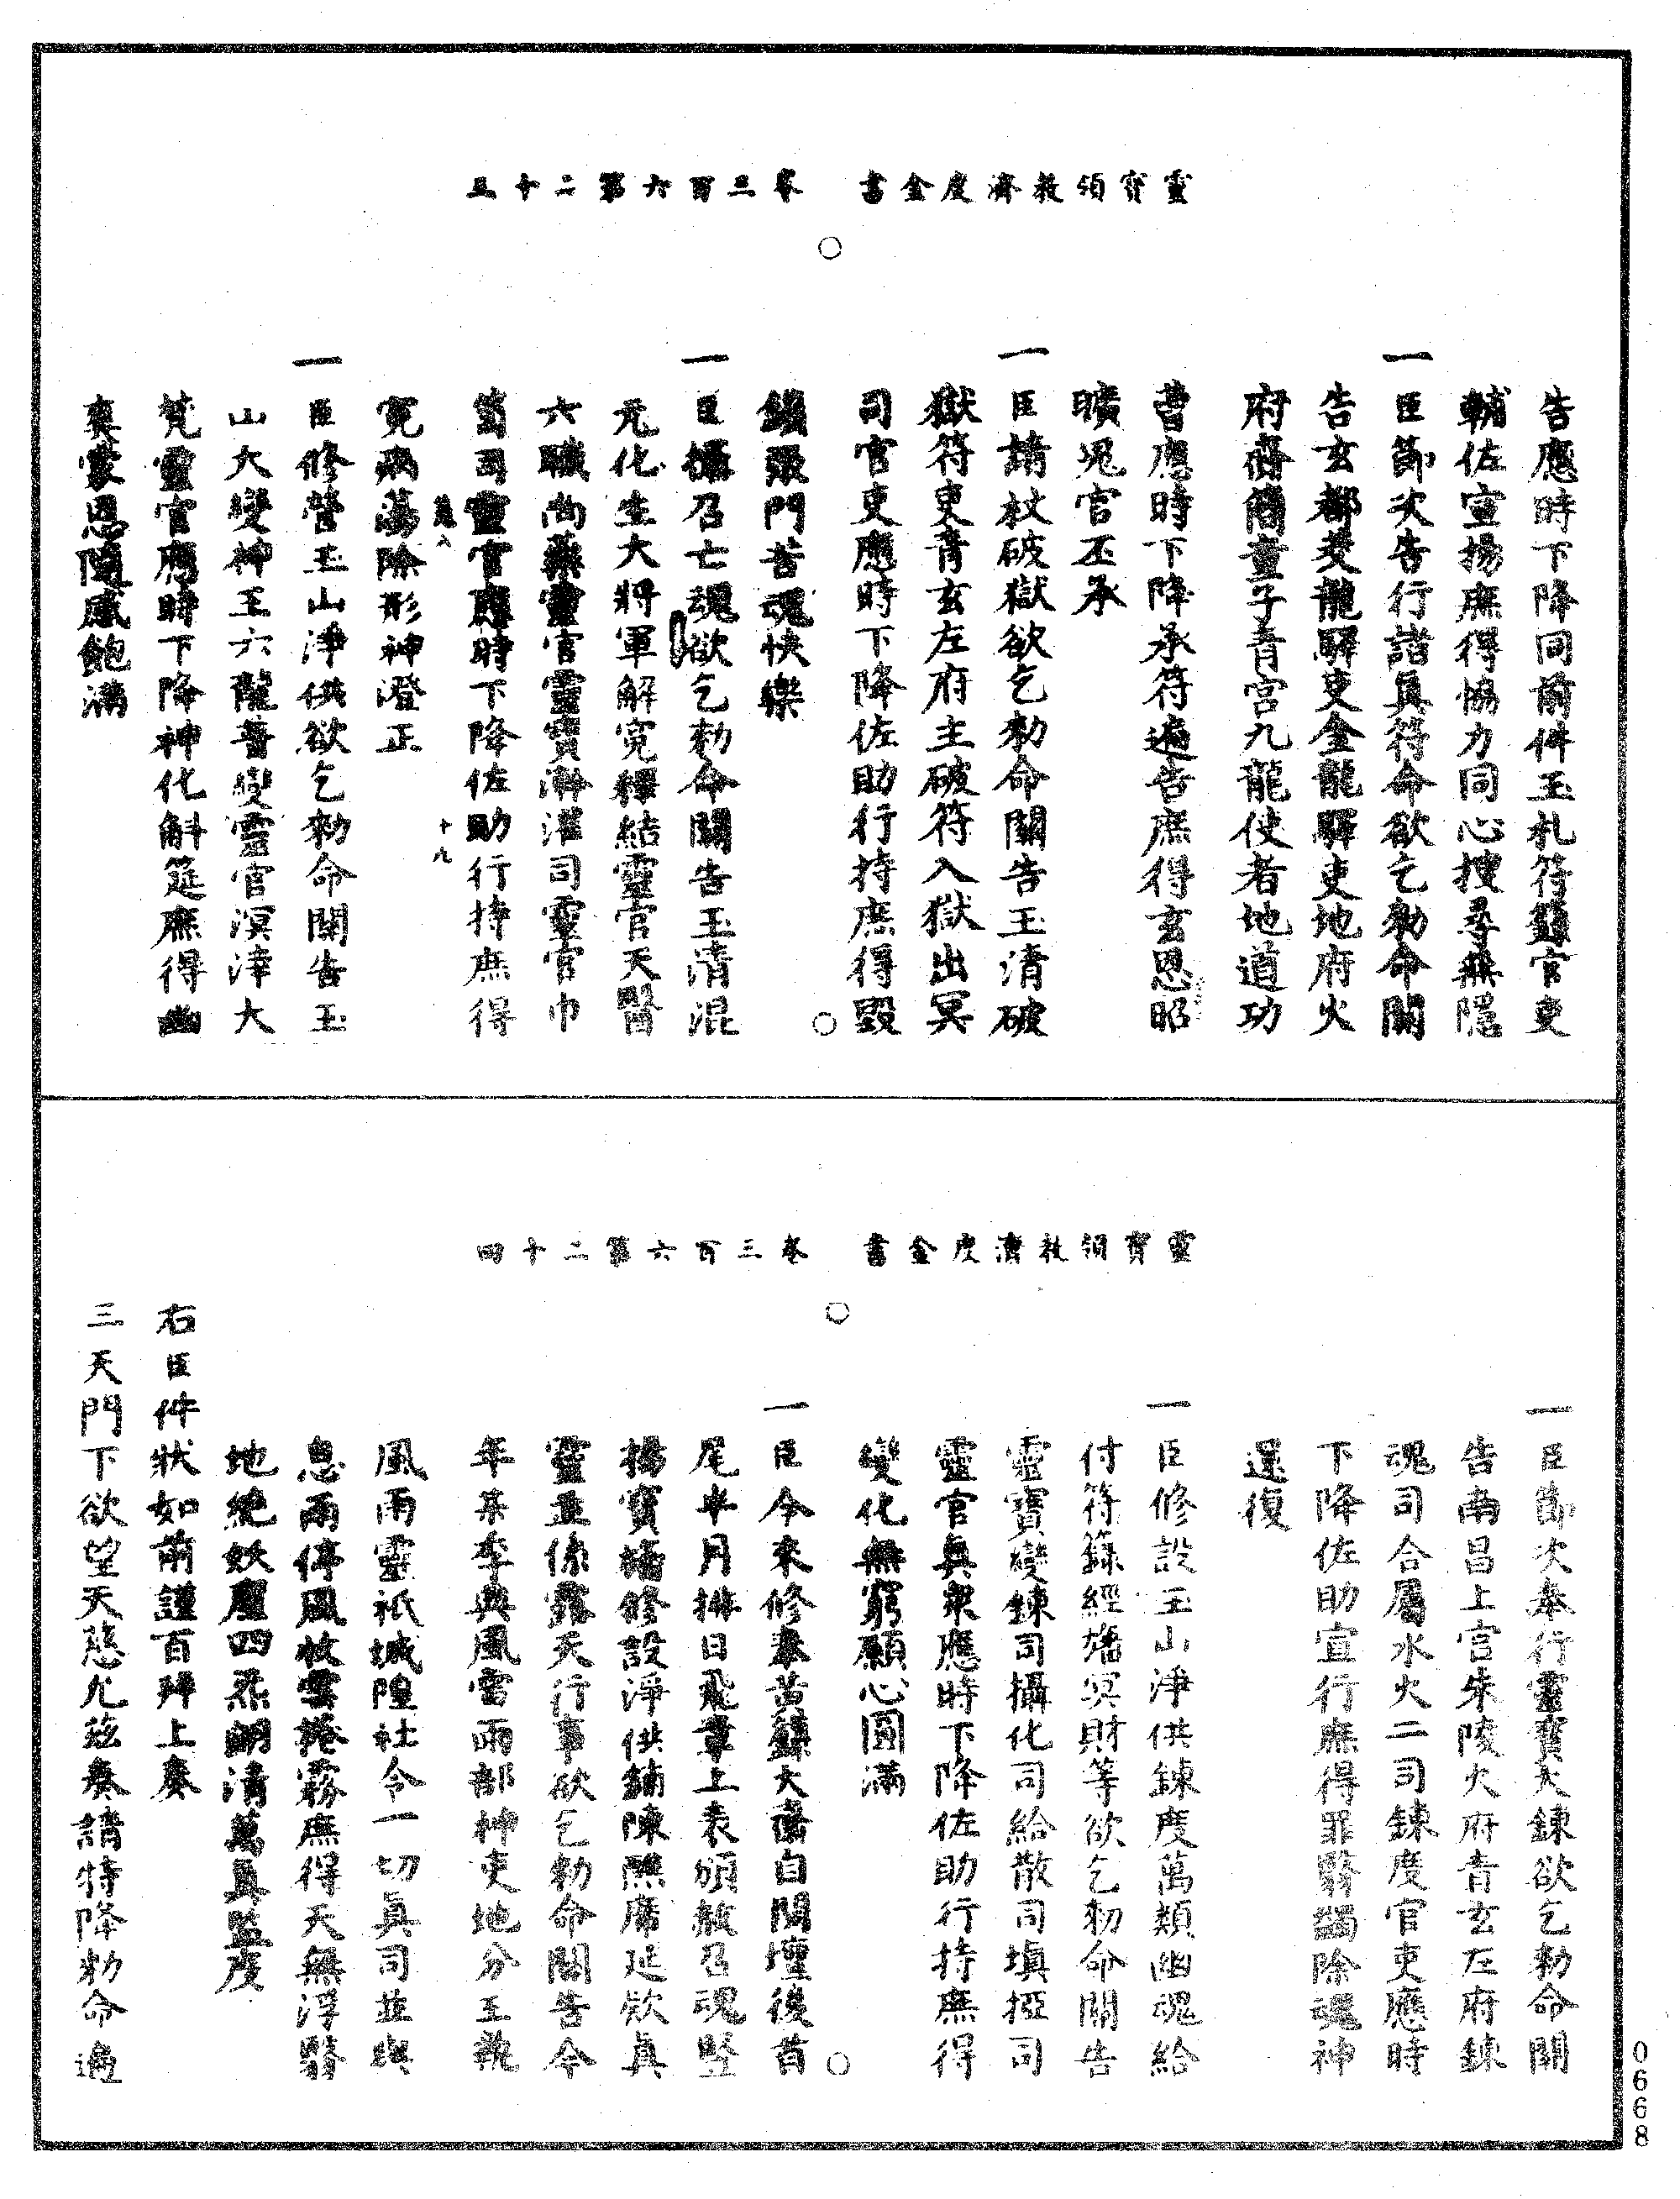 靈寶領教濟度金書　卷三百六第二十三
告應時下降同前件玉札符籙官吏
輔佐宣揚庶得協力同心搜尋無隱
一臣節次告行諸真符命欲乞勑命關
告玄都茭龍驛吏金龍驛吏地府火
府齎簡童子青宮九龍使者地道功
曹應時下降承符遍告庶得玄恩昭
曠鬼官丕承
一臣請杖破獄欲乞勑命關告玉清破
獄符吏青玄左府主破符入獄出冥
司官吏應時下降佐助行持庶得毀
鎖張門苦魂快樂
一臣攝召亡魂欲乞勑命關告玉清混
元化生大將軍解寃釋結靈官天醫
六職尚藥靈官靈寶澣濯司靈官巾
笥司靈官應時下降佐助行持庶得
十九
寃滯蕩除形神澄正
一臣修營玉山淨供欲乞勑命關告玉
山大變神王六龍普變靈官溟涬大
梵靈官應時下降神化斛筵庶得幽
爽蒙恩隨感飽滿
靈寶領教濟度金書　卷三百六第二十四
一臣節次奉行靈寶大鍊欲乞勑命關
告南昌上宮朱陵火府青玄左府鍊
魂司合屬水火二司鍊度官吏應時
下降佐助宣行庶得罪翳蠲除魂神
還復
一臣修設玉山淨供鍊度萬類幽魂給
付符籙經旛冥財等欲乞勑命關告
靈寶變鍊司攝化司給散司填掗司
靈官真眾應時下降佐助行持庶得
變化無窮願心圓滿
一臣今來修奉黃籙大齋自開壇後首
尾半月排日飛章上表頒赦召魂竪
揚寶旛修設淨供鋪陳醮席延欵真
靈並係露天行事欲乞勑命關告今
年某季典風雷雨部神吏地分主執
風雨靈祇城隍社令一切真司並與
息雨停風收雲捲霧庶得天無浮翳
地絶妖塵四炁朗清萬真監度
右臣件狀如前謹百拜上奏
三天門下欲望天慈允茲奏請特降勑命遍
0668